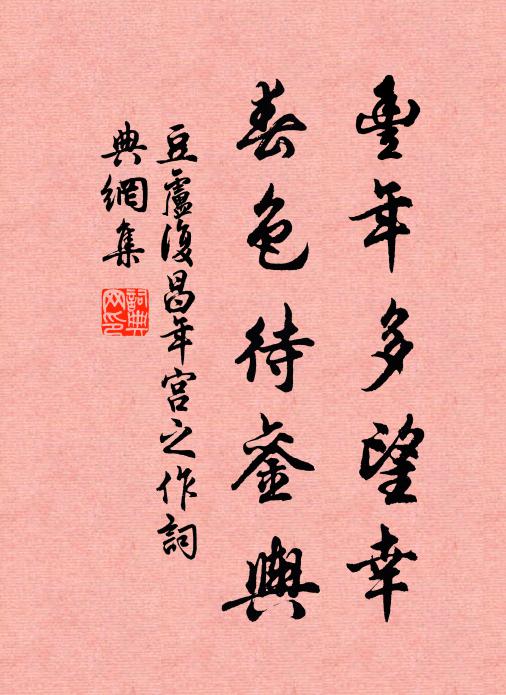 豐年多望幸
春色待鑾輿
豆盧復昌年宮之作詞
典網集
詞典
网印